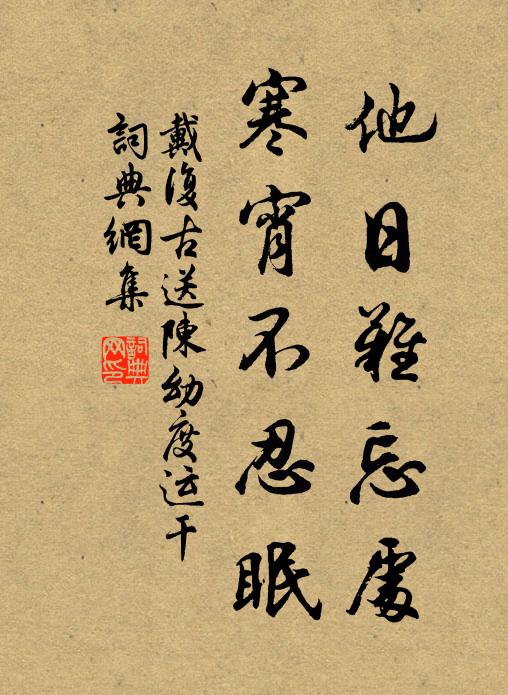 他日難忘處
寒宵不忍眠
戴復古送陳幼度运干
詞典網集
詞典网印